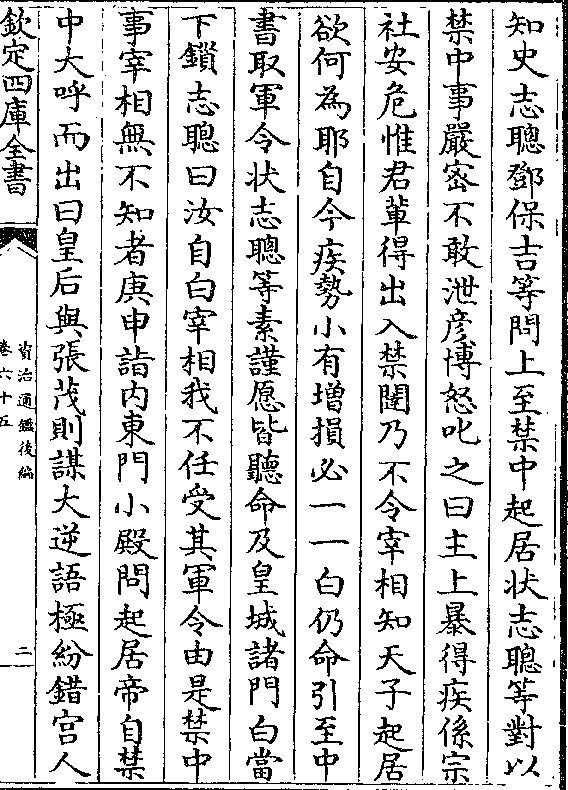 知史志聰鄧保吉等問上至禁中起居状志聰等對以
禁中事嚴宻不敢泄彦博怒叱之曰主上暴得疾係宗
社安危惟君輩得出入禁闥乃不令宰相知天子起居
欲何為耶自今疾勢小有増損必一一白仍命引至中
書取軍令状志聰等素謹愿皆聽命及皇城諸門白當
下鎖志聰曰汝自白宰相我不任受其軍令由是禁中
事宰相無不知者庚申詣内東門小殿問起居帝自禁
中大呼而出曰皇后與張茂則謀大逆語極紛錯宫人
欽定四庫全書
資治通鑑後編
卷六十五
二